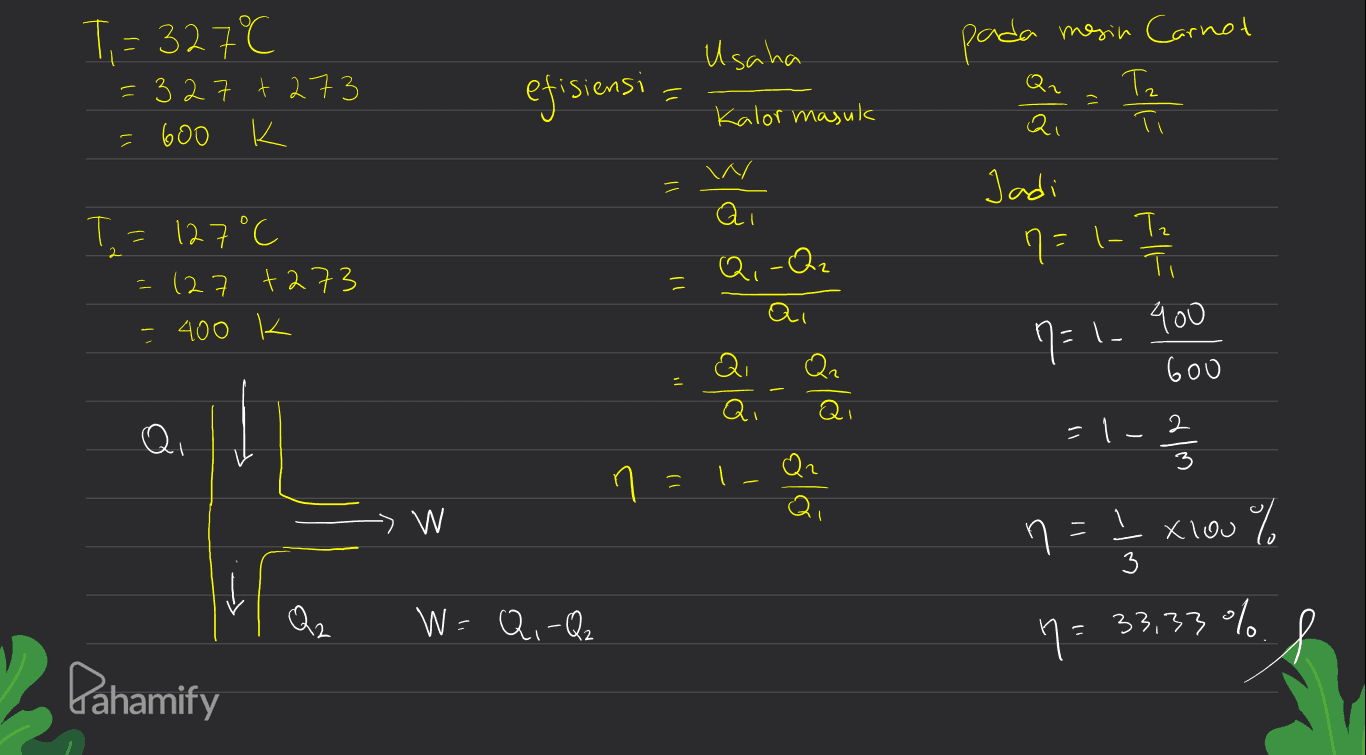 T₁ = 327°C
= 327 + 273
= 600 K
T₂ = 127°C
= 127 + 273
= 400 K
Q₁
W
Q₂
W = Q₁-Q₂
efisiensi = Usaha / Kalor masuk
= W / Q₁
= Q₁-Q₂ / Q₁
= Q₁ / Q₁ - Q₂ / Q₁
η = 1 - Q₂ / Q₁
pada mesin Carnot
Q₂ / Q₁ = T₂ / T₁
Jadi
η = 1 - T₂ / T₁
η = 1 - 400 / 600
= 1 - 2 / 3
η = 1 / 3 x 100 %
η = 33,33 %
Pahamify